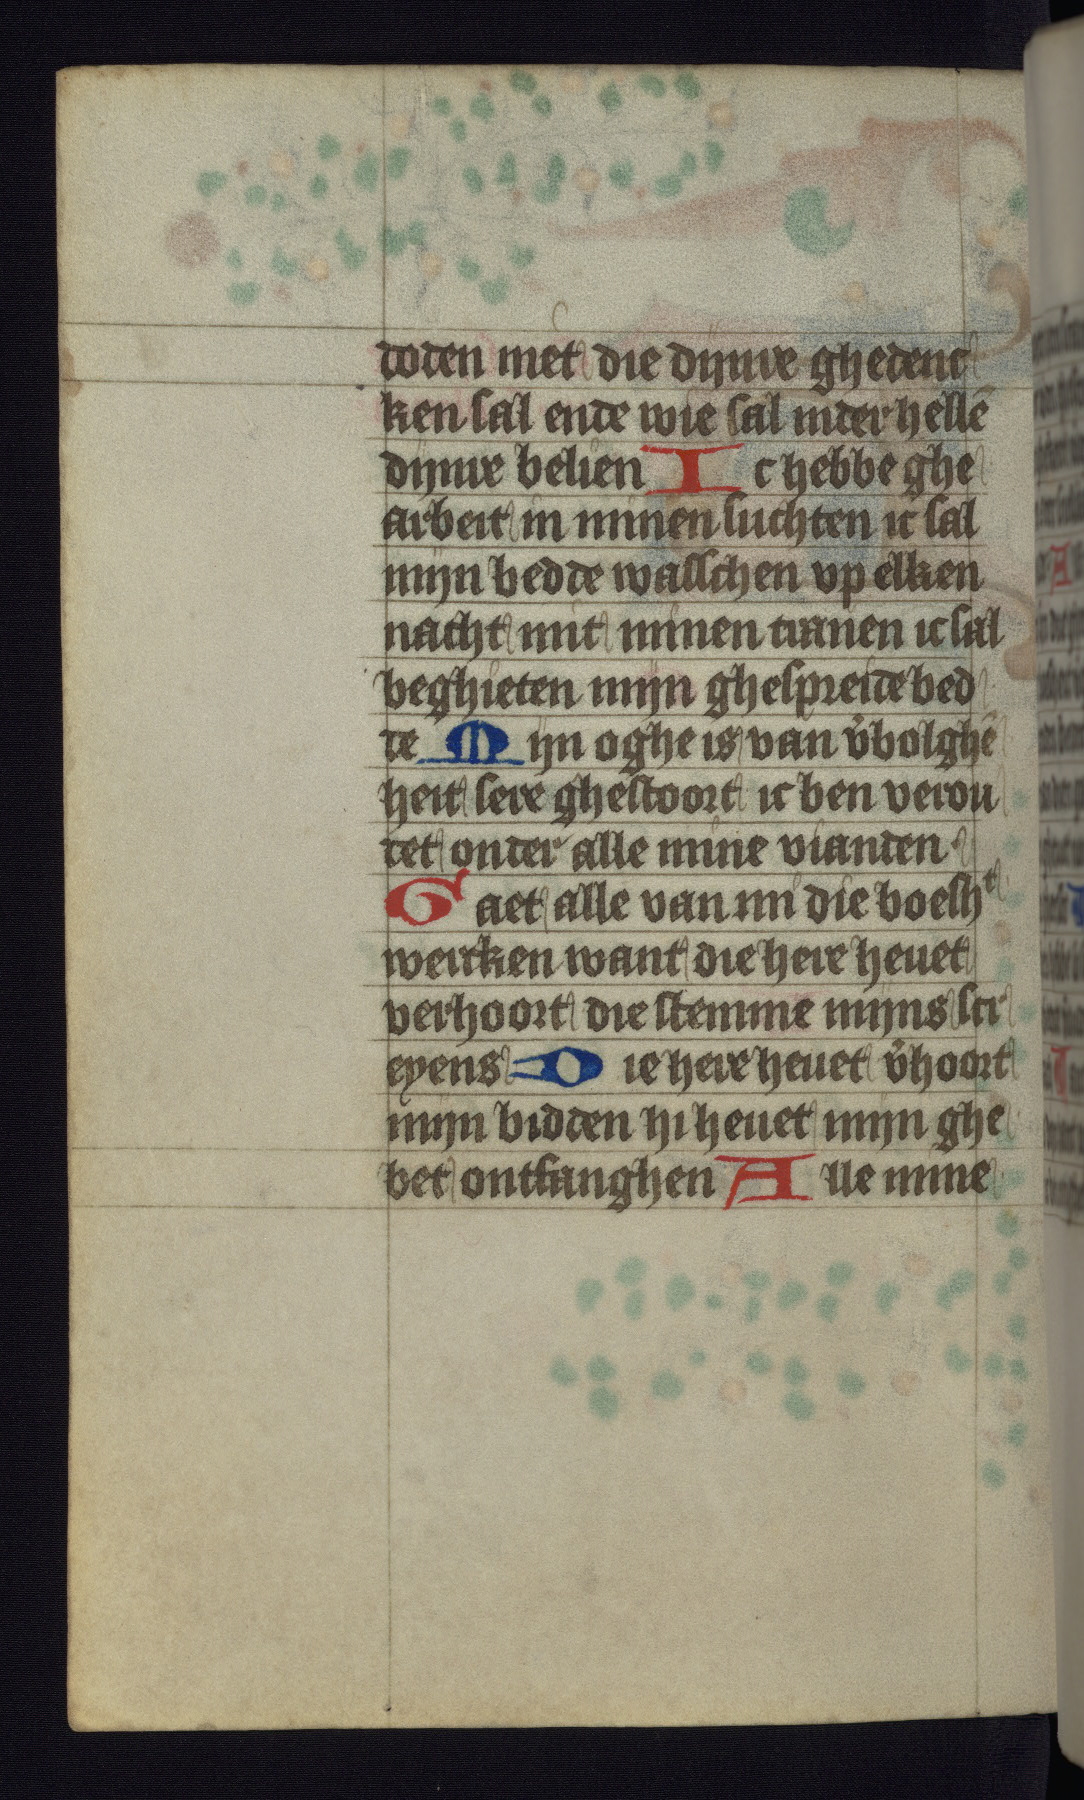 doden niet die dijnre ghedenc
ken sal ende wie sal inder hellē
dijnre belien Ic hebbe ghe
arbeit in minen suchten ic sal
mijn bedde wasschen vp elken
nacht mit minen tranen ic sal
beghieten mijn ghespreide bed
de Mijn oghe is van v̄bolghē
heit sere ghestoort ic ben verou
det onder alle mine vianden.
Gaet alle van mi die boesht
wercken want die here heuet
verhoort die stemme mijns scr
eyens Die here heuet v̄hoort
mijn bidden hi heuet mijn ghe
bet ontfanghen Alle mine